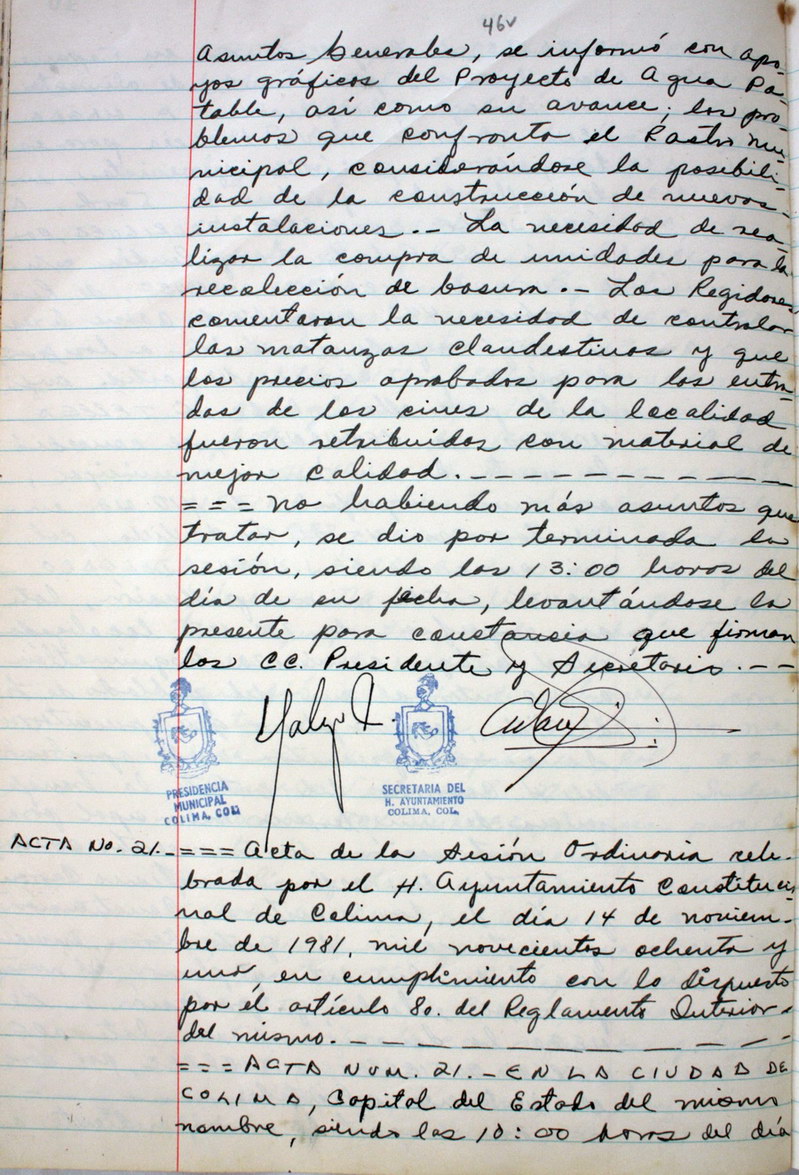 46v
Asuntos Generales, se informó con apo-
yos gráficos del Proyecto de Agua Po-
table, así como su avance; los pro-
blemas que confronta el Rastro mu-
nicipal, considerándose la posibili-
dad de la construcción de nuevas
instalaciones.- La necesidad de rea-
lizar la compra de unidades para la
recolección de basura.- Los Regidores
comentaron la necesidad de controlar
las matanzas clandestinas y que
los precios aprobados para las entra-
das de los cines de la localidad
fueron retribuidos con material de
mejor calidad.- - - - - - - - - - -
= = = no habiendo más asuntos que
tratar, se dio por terminada la
sesión, siendo las 13:00 horas del
día de su fecha, levantándose la
presente para constancia que firman
los CC. Presidente y Secretario.- -
PRESIDENCIA
MUNICIPAL
COLIMA, COL.
SECRETARIA DEL
H. AYUNTAMIENTO
COLIMA, COL.
ACTA No. 21.- = = = Acta de la Sesión Ordinaria cele-
brada por el H. Ayuntamiento Constitucio-
nal de Colima, el día 14 de noviem-
bre de 1981, mil novecientos ochenta y
uno, en cumplimiento con lo dispuesto
por el artículo 8o. del Reglamento Interior
del mismo.- - - - - - - - - -
= = = ACTA NUM. 21.- EN LA CIUDAD DE
COLIMA, Capital del Estado del mismo
nombre, siendo las 10:00 horas del día